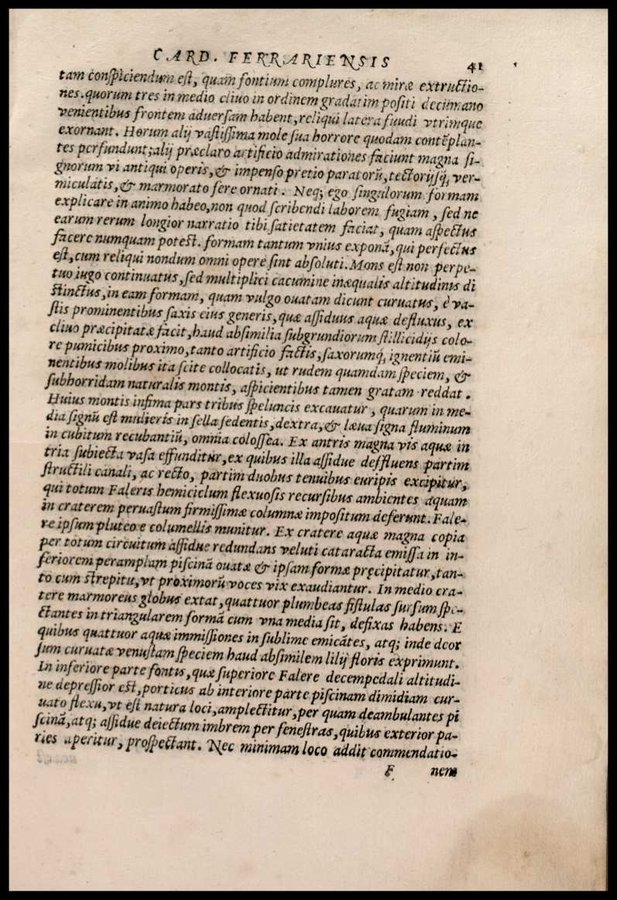 CARD. FERRARIENSIS 41
tam conspiciendum est, quam fontium complures, ac miræ extructio-
nes. quorum tres in medio cliuo in ordinem gradatim positi decumano
venientibus frontem aduersam habent, reliqui latera fuudi vtrimque
exornant. Horum alij vastissima mole sua horrore quodam contẽplan-
tes perfundunt; alij præclaro artificio admirationes faciunt magna si-
gnorum vi antiqui operis, & impenso pretio paratorũ, tectorijsq́; ver-
miculatis, & marmorato fere ornati. Neq; ego singulorum formam
explicare in animo habeo, non quod scribendi laborem fugiam, sed ne
earum rerum longior narratio tibi satietatem faciat, quam aspectus
facere numquam potest. formam tantum vnius exponã, qui perfectus
est, cum reliqui nondum omni opere sint absoluti. Mons est non perpe-
tuo iugo continuatus, sed multiplici cacumine inæqualis altitudinis di
stinctus, in eam formam, quam vulgo ouatam dicunt curuatus, è va-
stis prominentibus saxis eius generis, quæ assiduus aquæ defluxus, ex
cliuo præcipitatæ facit, haud absimilia subgrundiorum stillicidijs colo-
re pumicibus proximo, tanto artificio factis, saxorumq́; ignentiũ emi-
nentibus molibus ita scite collocatis, ut rudem quamdam speciem, &
subhorridam naturalis montis, aspicientibus tamen gratam reddat.
Huius montis infima pars tribus speluncis excauatur, quarum in me-
dia signũ est mulieris in sella sedentis, dextra, & læua signa fluminum
in cubitum recubantiũ, omnia colossea. Ex antris magna vis aquæ in
tria subiecta vasa effunditur, ex quibus illa assidue deffluens partim
structili canali, ac recto, partim duobus tenuibus euripis excipitur,
qui totum Faleris hemiciclum flexuosis recursibus ambientes aquam
in craterem peruastum firmissimæ columnæ impositum deferunt. Fale-
re ipsum pluteo e columellis munitur. Ex cratere aquæ magna copia
per totum circuitum assidue redundans veluti cataracta emissa in in-
feriorem peramplam piscinã ouatæ & ipsam formæ pręcipitatur, tan-
to cum strepitu, vt proximorũ voces vix exaudiantur. In medio cra-
tere marmoreus globus extat, quattuor plumbeas fistulas sursum spe-
ctantes in triangularem formã cum vna media sit, defixas habens. E
quibus quattuor aquæ immissiones in sublime emicãtes, atq; inde deor
sum curuatæ venustam speciem haud absimilem lilij floris exprimunt.
In inferiore parte fontis, quæ superiore Falere decempedali altitudi-
ne depressior est, porticus ab interiore parte piscinam dimidiam cur-
uato flexu, vt est natura loci, amplectitur, per quam deambulantes pi
scinã, atq; assidue deiectum imbrem per fenestras, quibus exterior pa-
ries aperitur, prospectant. Nec minimam loco addit commendatio-
F nem